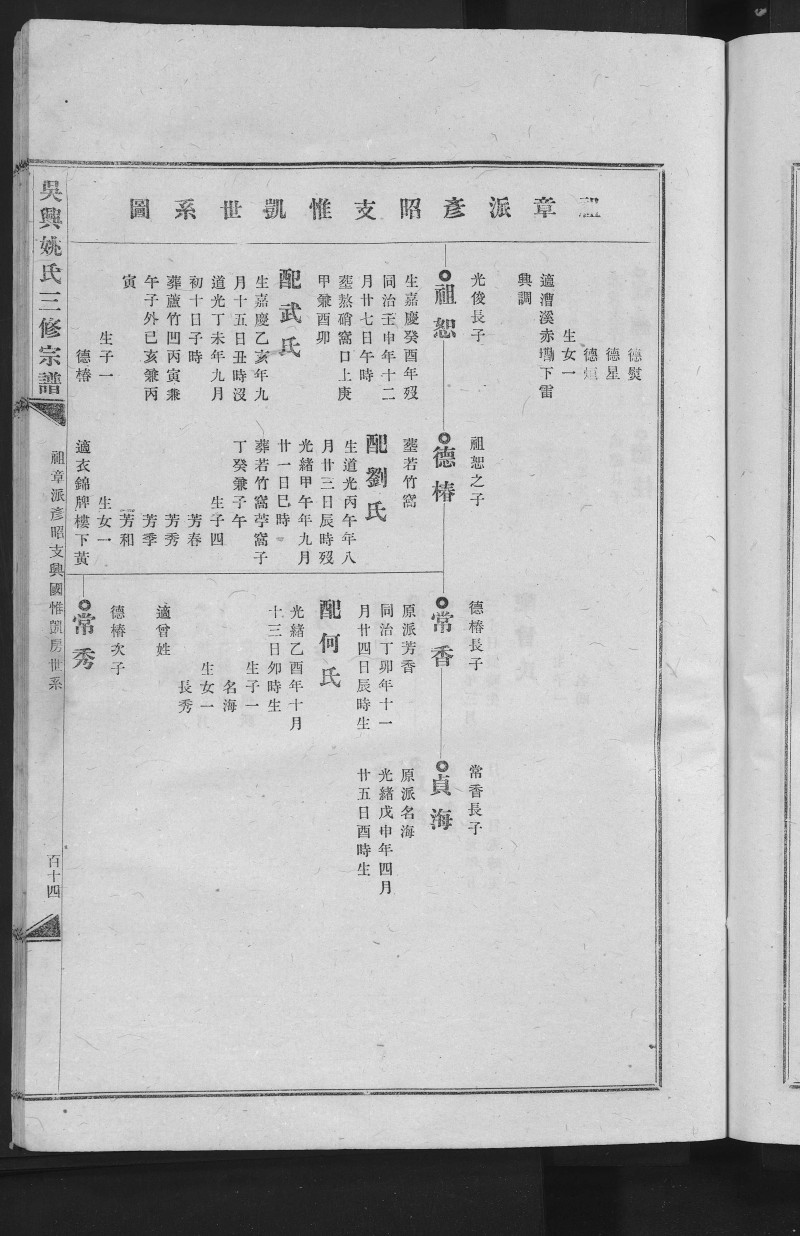 祖章派彥昭支惟凱世系圖
德熨
德星
德
生女一
適漕溪赤塌下雷
興調
光俊長子
祖恕
生嘉慶癸酉年歿
同治壬申年十二
月廿七日午時
塟熬硝窩口上庚
甲兼酉卯
配武氏
生嘉慶乙亥年九
月十五日丑時沒
道光丁未年九月
初十日子時
葬蘆竹凹丙寅兼
午子外巳亥兼丙
寅
生子一
德椿
祖恕之子
德椿
塟若竹窩
配劉氏
生道光丙午年八
月廿三日辰時歿
光緒甲午年九月
廿一日巳時
葬若竹窩茡窩子
丁癸兼子午
生子四
芳春
芳秀
芳季
芳和
生女一
適衣錦牌樓下黃
德椿長子
常香
原派芳香
同治丁卯年十一
月廿四日辰時生
配何氏
光緒乙酉年十月
十三日夘時生
生子一
名海
生女一
長秀
適曾姓
德椿次子
常秀
常香長子
貞海
原派名海
光緒戊申年四月
廿五日酉時生
吳興姚氏三修宗譜
祖章派彥昭支興國惟凱房世系
百十四